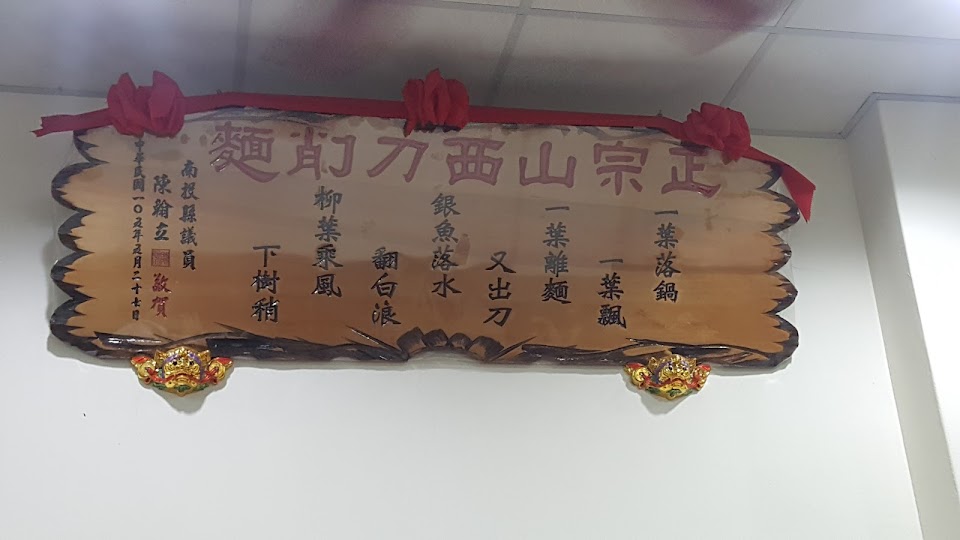 正宗山西刀削麵
一葉落鍋
一葉飄
一葉離麵
又出刀
銀魚落水
翻白浪
柳葉乘風
下樹稍
南投縣議員
陳翰立 敬賀
中華民國一0五年五月二十七日